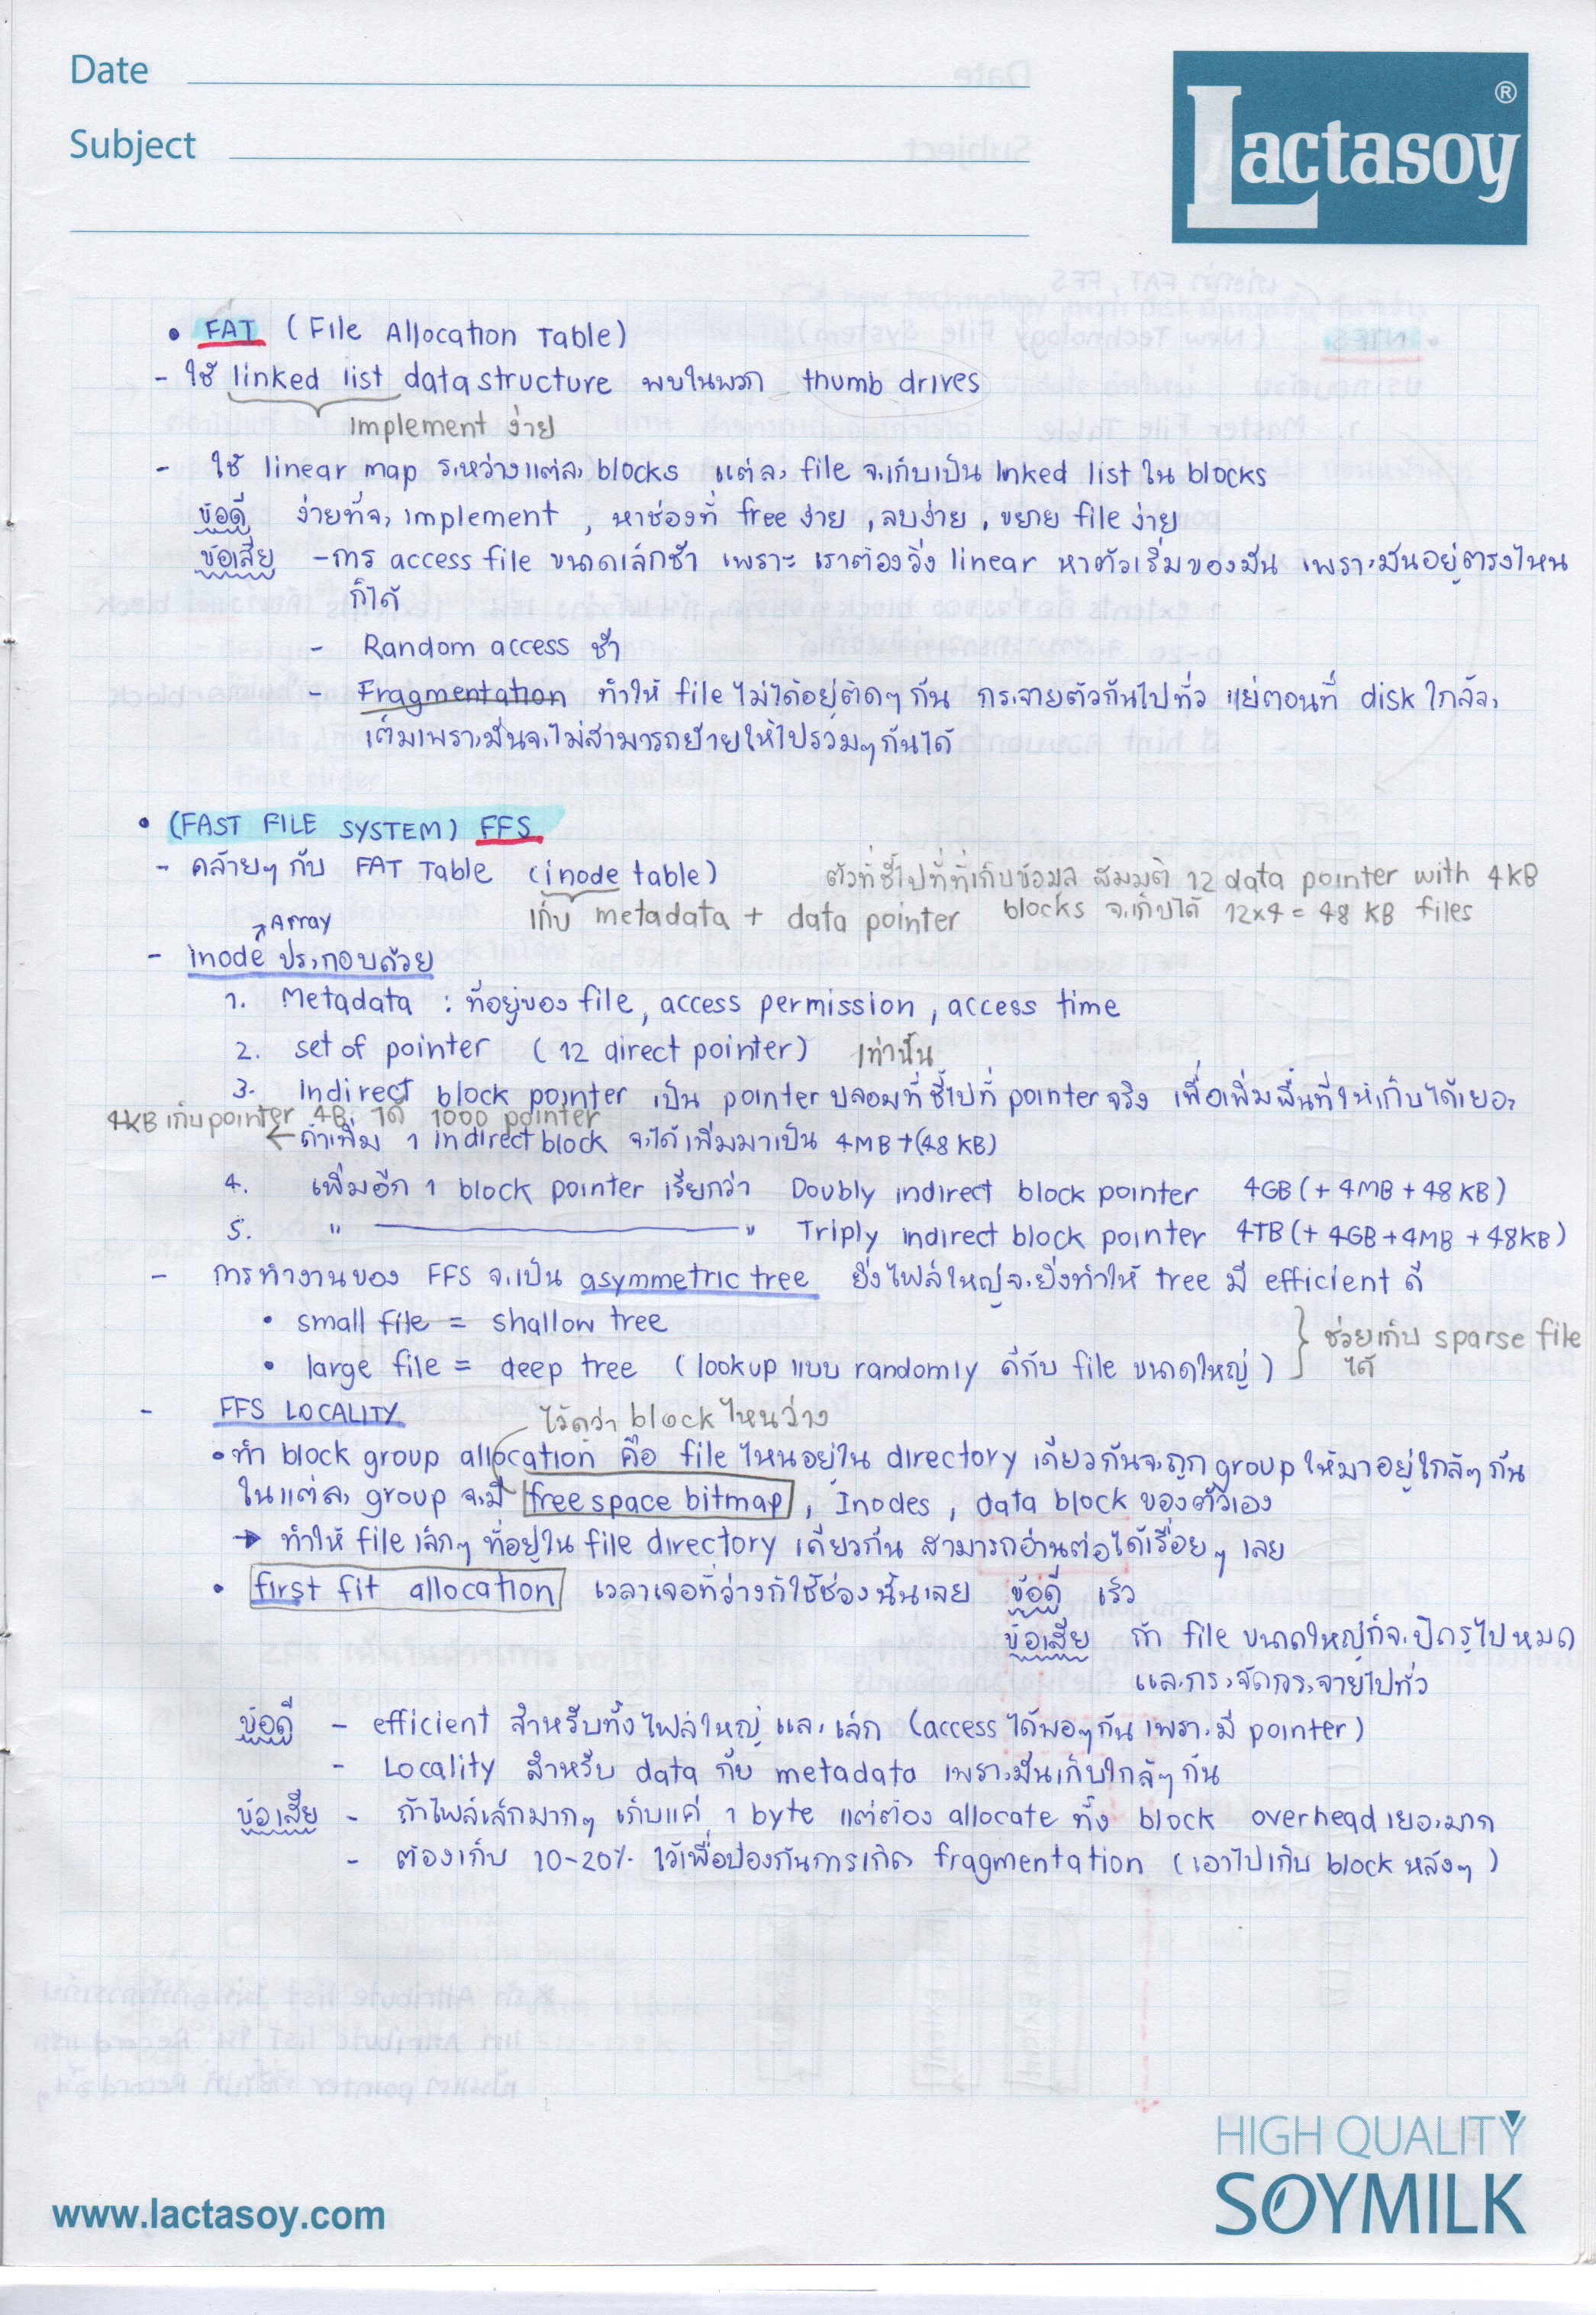 Date
Subject
Lactasoy ®
• FAT (File Allocation Table)
- ใช้ linked list data structure พบในพวก thumb drives
implement ง่าย
- ใช้ linear map ระหว่างแต่ละ blocks แต่ละ file จะเก็บเป็น lnked list ใน blocks
ข้อดี ง่ายที่จะ implement , หาช่องที่ free ง่าย , ลบง่าย , ขยาย file ง่าย
ข้อเสีย - การ access file ขนาดเล็กช้า เพราะ เราต้องวิ่ง linear หาตัวเริ่มของมัน เพราะมันอยู่ตรงไหน
ก็ได้
- Random access ช้า
- Fragmentation ทำให้ file ไม่ได้อยู่ติดๆ กัน กระจายตัวกันไปทั่ว แย่ตอนที่ disk ใกล้จะ
เต็มเพราะมันจะไม่สามารถย้ายให้ไปรวมๆ กันได้
• (FAST FILE SYSTEM) FFS
- คล้ายๆ กับ FAT Table (inode table)
ตัวที่ชี้ไปที่ที่เก็บข้อมูล สมมติ 12 data pointer with 4KB
เก็บ metadata + data pointer
blocks จะเก็บได้ 12x4 = 48 KB files
Array
- inode ประกอบด้วย
1. Metadata : ที่อยู่ของ file , access permission , access time
2. set of pointer (12 direct pointer) เท่านั้น
3. Indirect block pointer เป็น pointer ปลอมที่ชี้ไปที่ pointer จริง เพื่อเพิ่มพื้นที่ให้เก็บได้เยอะ
4KB เก็บ pointer 4B ได้ 1000 pointer
← ถ้าเพิ่ม 1 indirect block จะได้เพิ่มมาเป็น 4MB + (48 KB)
4. เพิ่มอีก 1 block pointer เรียกว่า Doubly indirect block pointer 4GB (+ 4MB + 48KB)
5. " ——— " Triply indirect block pointer 4TB (+ 4GB + 4MB + 48KB)
- การทำงานของ FFS จะเป็น asymmetric tree ยิ่งไฟล์ใหญ่จะยิ่งทำให้ tree มี efficient ดี
• small file = shallow tree
• large file = deep tree (lookup แบบ randomly ดีกับ file ขนาดใหญ่)
ช่วยเก็บ sparse file
ได้
- FFS LOCALITY
ไว้ดูว่า block ไหนว่าง
• ทำ block group allocation คือ file ไหนอยู่ใน directory เดียวกันจะถูก group ให้มาอยู่ใกล้ๆ กัน
ในแต่ละ group จะมี free space bitmap , Inodes , data block ของตัวเอง
→ ทำให้ file เล็กๆ ที่อยู่ใน file directory เดียวกัน สามารถอ่านต่อได้เรื่อยๆ เลย
• first fit allocation เวลาเจอที่ว่างก็ใช้ช่องนั้นเลย ข้อดี เร็ว
ข้อเสีย ถ้า file ขนาดใหญ่ก็จะปิดรูไปหมด
และกระจัดกระจายไปทั่ว
ข้อดี - efficient สำหรับทั้งไฟล์ใหญ่ และ เล็ก (access ได้พอๆ กัน เพราะมี pointer)
- Locality สำหรับ data กับ metadata เพราะมันเก็บใกล้ๆ กัน
ข้อเสีย - ถ้าไฟล์เล็กมากๆ เก็บแค่ 1 byte แต่ต้อง allocate ทั้ง block overhead เยอะมาก
- ต้องเก็บ 10-20% ไว้เพื่อป้องกันการเกิด fragmentation (เอาไปเก็บ block หลังๆ)
HIGH QUALITY
SOYMILK
www.lactasoy.com